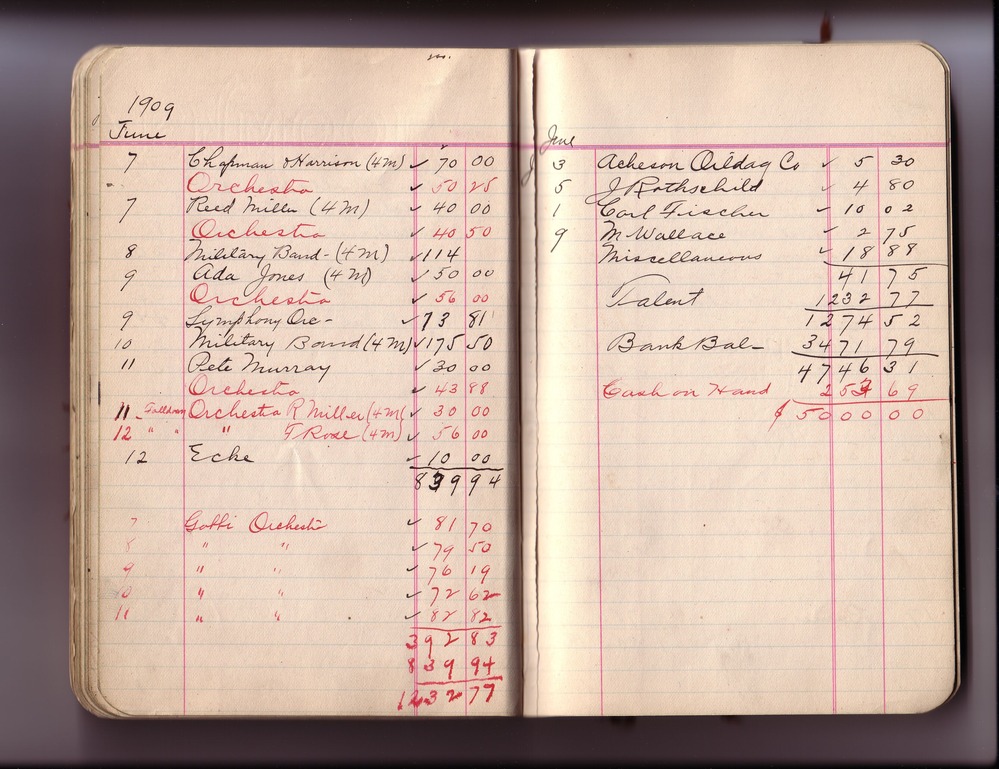 1909
June
7 Chapman & Harrison (4M) ✓ 70 00
Orchestra ✓ 50 25
7 Reed Miller (4M) ✓ 40 00
Orchestra ✓ 40 50
8 Military Band- (4M) ✓ 114
9 Ada Jones (4M) ✓ 50 00
Orchestra ✓ 56 00
9 Symphony Orc- ✓ 73 81
10 Military Band (4M) ✓ 175 50
11 Pete Murray ✓ 30 00
Orchestra ✓ 43 88
11 Orchestra R Miller (4M) ✓ 30 00
12 " " " F Rose (4M) ✓ 56 00
12 Ecke ✓ 10 00
839 94
7 Orchestra ✓ 81 70
8 " " ✓ 79 50
9 " " ✓ 76 19
10 " " ✓ 72 62
11 " " ✓ 82 82
392 83
839 94
1232 77
June
3 Acheson Oildag Co ✓ 5 30
5 J Rothschild ✓ 4 80
1 Carl Fischer ✓ 10 02
9 M. Wallace ✓ 2 75
Miscellaneous ✓ 18 88
41 75
Talent 1232 77
1274 52
Bank Bal- 3471 79
4746 31
Cash on Hand 253 69
$ 5000 00